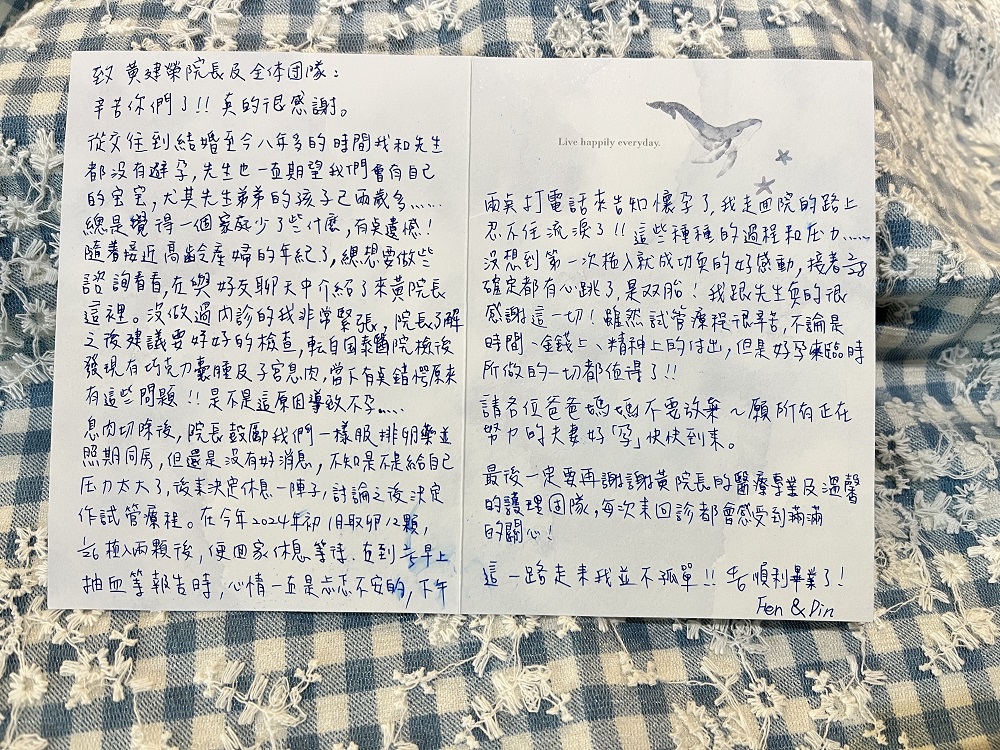 致 黃建榮院長及全体团隊：
辛苦你們了!! 真的很感謝。
從交往到結婚至今八年多的時間我和先生
都沒有避孕,先生也一直期望我們會有自己
的宝宝,尤其先生弟弟的孩子已兩歲多......
總是覺得一個家庭少了些什麼,有点遺憾!
隨着接近高齡產婦的年紀了,總想要做些
諮詢看看,在與好友聊天中介紹了來黃院長
這裡。沒做過內診的我非常緊張,院長了解
之後建議要好好的檢查,転自国泰醫院檢後
發現有巧克力囊腫及子宮息肉,當下有点錯愕原來
有這些問題!! 是不是這原因導致不孕.....
息肉切除後,院長鼓勵我們一樣服排卵藥並
照期同房,但還是沒有好消息,不知是不是給自己
压力太大了,後来決定休息一陣子,討論之後決定
作試管療程。在今年2024年初1月取卵12顆,
植入兩顆後,便回家休息等待.在到 早上
抽血等報告時,心情一直是忐忑不安的,下午
Live happily everyday.
兩点打電話來告知懷孕了,我走回院的路上
忍不住流淚了!! 這些種種的過程和压力.....
沒想到第一次植入就成功真的好感動,接著
確定都有心跳了,是双胎! 我跟先生真的很
感謝這一切! 雖然試管療程很辛苦,不論是
時間、金錢上、精神上的付出,但是好孕來臨時
所做的一切都值得了!!
請各位爸爸媽媽不要放棄～願所有正在
努力的夫妻好「孕」快快到來。
最後一定要再謝謝黃院長的醫療專業及溫馨
的護理团隊,每次来回診都會感受到滿滿
的關心!
這一路走来我並不孤單!! 順利畢業了!
Fen & Pin